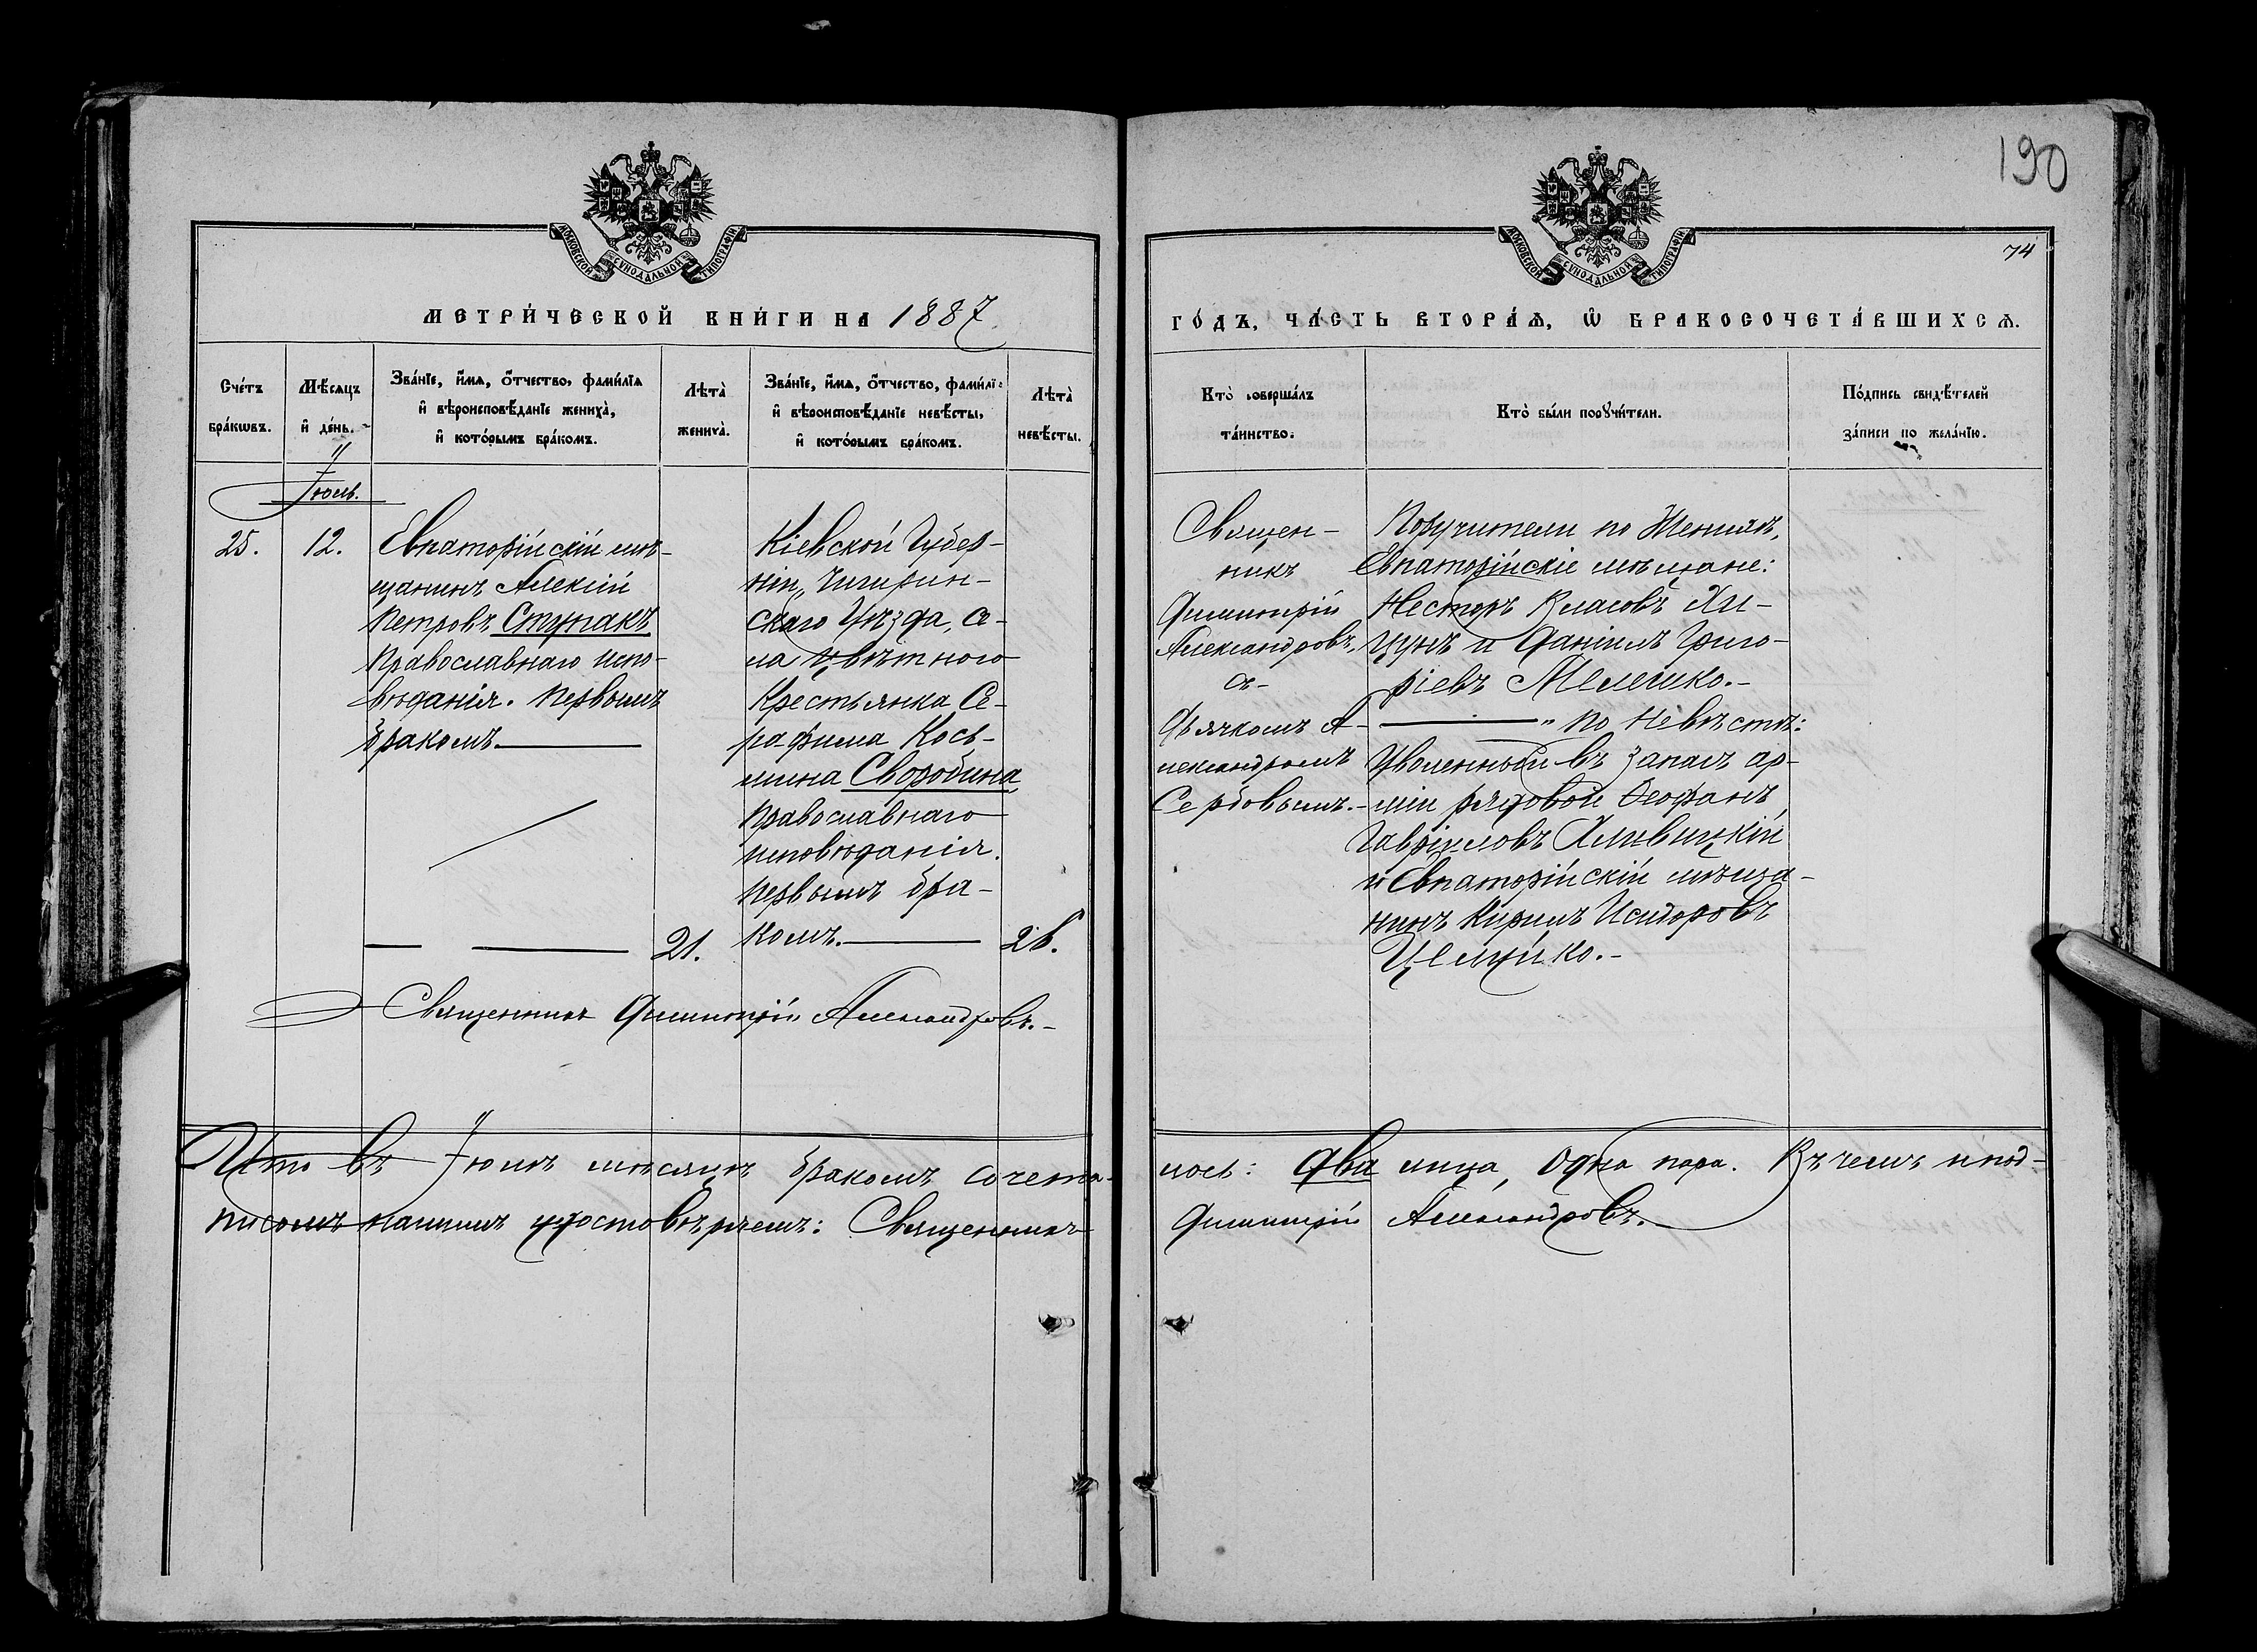 190
74
МОСКОВСКОЙ СѴНОДАЛЬНОЙ ТИПОГРАФІИ
МОСКОВСКОЙ СѴНОДАЛЬНОЙ ТИПОГРАФІИ
МЕТРИ́ЧЕСКОЙ КНИ́ГИ НА 1887
ГО́ДЪ, ЧА́СТЬ ВТОРА́Ѧ, Ѡ҆ БРАКОСОЧЕТА́ВШИХСѦ.
Сче́тъ
бра́кѡвъ.
Мѣ́сяцъ
и҆ де́нь.
Зва́нїе, и҆́мѧ, ѻ҆́тчество, фами́лїѧ
и҆ вѣроисповѣ́данїе жениха̀,
и҆ кото́рымъ бра́комъ.
Лѣта̀
жениха̀.
Зва́нїе, и҆́мѧ, ѻ҆́тчество, фами́лїѧ
и҆ вѣроисповѣ́данїе невѣ́сты,
и҆ кото́рымъ бра́комъ.
Лѣта̀
невѣ́сты.
Кто̀ соверша́лъ
та́инство.
Кто̀ бы́ли порꙋчи́тели.
По́дпись свидѣ́телей
за́писи по жела́нїю.
Іюль.
25.
12.
Евпаторійскій мѣ-
щанинъ Алексій
Петровъ Ступакъ
Православнаго испо-
вѣданія. Первымъ
бракомъ.
21.
Кіевской Губер-
ніи, Чигирин-
скаго Уѣзда, се-
ла Цвѣтного
Крестьянка Се-
рафима Кось-
мина Своробина,
Православнаго
исповѣданія.
Первымъ бра-
комъ.
26.
Священ-
никъ
Димитрій
Александровъ.
съ-
Дьячкомъ А-
лександромъ
Сербовымъ.-
Поручители по Женихѣ,
Евпаторійскіе мѣщане:
Несторъ Власовъ Хи-
цунъ и Даніилъ Григо-
ріевъ Мелешко.-
" по Невѣстѣ:
Уволенный въ запасъ ар-
міи рядовой Ѳеофанъ
Гавріиловъ Хливицкій
и Евпаторійскій мѣща-
нинъ Кирилъ Исидоровъ
Священникъ Димитрій Александровъ.-
Что въ Іюлѣ мѣсяцѣ бракомъ сочета-
лось: два лица, одна пара. Въ чемъ и под-
писомъ нашимъ удостовѣряемъ: Священникъ
Димитрій Александровъ.